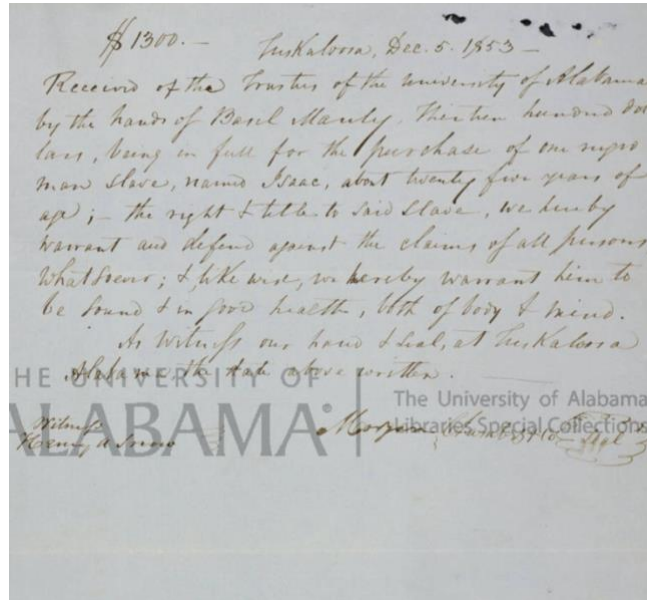 $1300.— Tuskaloosa, Dec. 5. 1853—
Received of the Trustees of the University of Alabama
by the hands of Basil Manly, Thirteen hundred dol
lars, being in full for the purchase of one negro
man slave, named Isaac, about twenty five years of
age; — the right & title to said slave, we hereby
warrant and defend against the claims of all persons
whatsoever; & likewise, we hereby warrant him to
be sound & in good health, both of body & mind.
As witness our hand & seal, at Tuskaloosa
Alabama, the date above written.
THE UNIVERSITY OF
ALABAMA
The University of Alabama
Libraries Special Collections
Witness
Henry A Snow
Morgan Seal